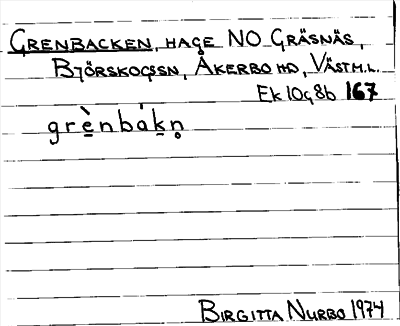 GRENBACKEN, HAGE NO GRÄSNÄS,
BJÖRSKOGSSN, ÅKERBO HD, VÄSTM.L.
Ek 10g8b 167
grè̱nbák̠n̥
BIRGITTA NURBO 1974